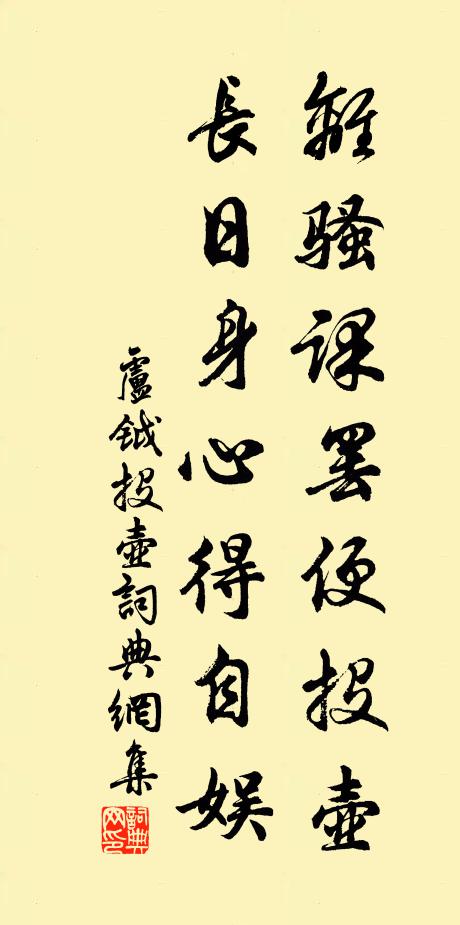 離騷課罷便投壺
長日身心得自娛
盧鉞投壺詞典網集
詞典
网印